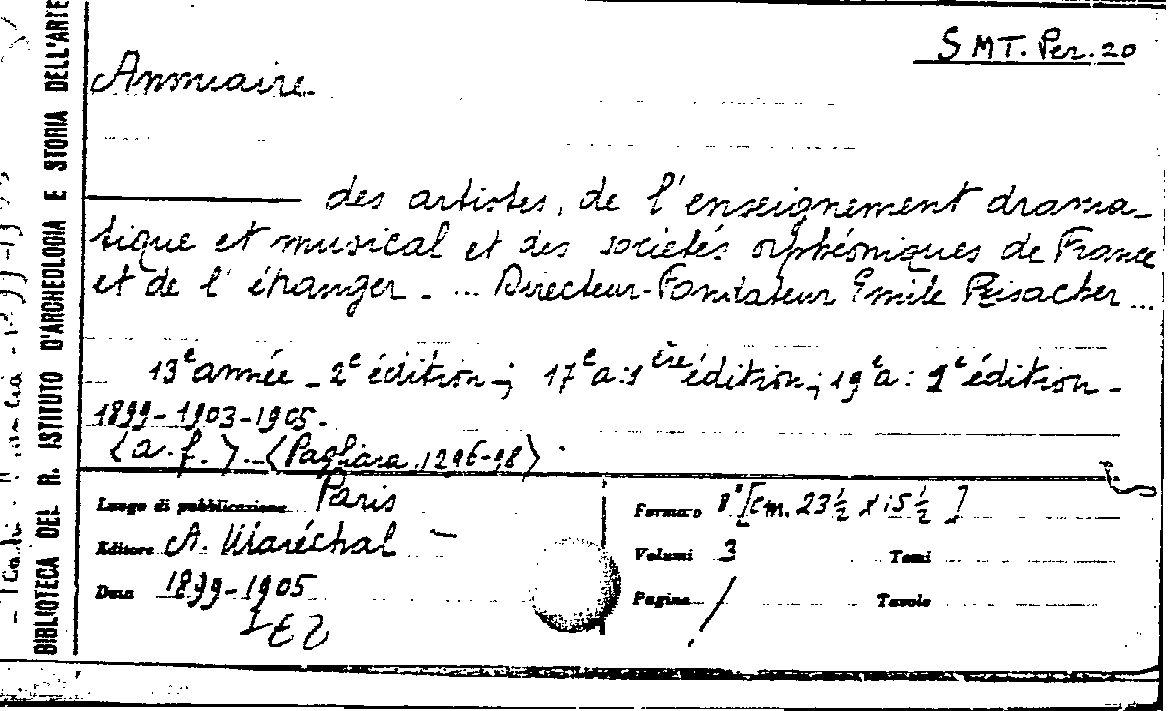 SMT. Per. 20
Annuaire
des artistes, de l'enseignement drama-
tique et musical et des sociétés orphéoniques de France
et de l'étranger - ... Directeur-Fondateur Emile Peisacher ...
13e année - 2e édition -; 17e a: 1ère édition -; 19e a: 1e édition -
1899-1903-1905-
(a.f.) - (Pagliara 1296-98)
Luogo di pubblicazione Paris
Editore A. Maréchal -
Data 1899-1905
Formato 8° [cm. 23½ x 15½]
Volumi 3 Tomi
Pagine / Tavole
BIBLIOTECA DEL R. ISTITUTO D'ARCHEOLOGIA E STORIA DELL'ARTE